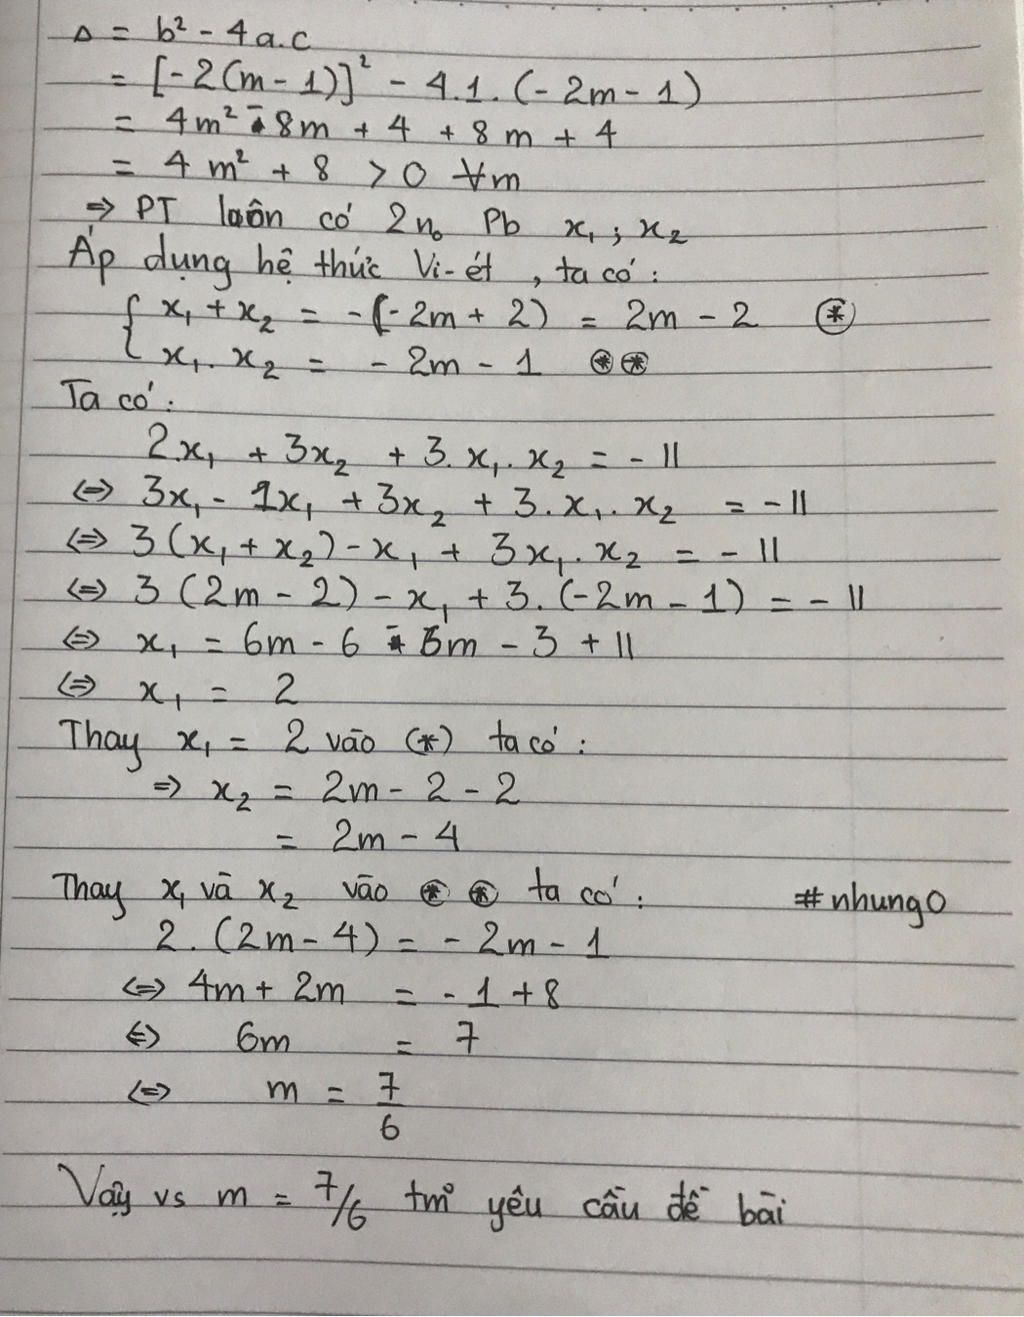 Δ = b² - 4a.c
= [-2(m - 1)]² - 4.1.(-2m - 1)
= 4m² - 8m + 4 + 8m + 4
= 4m² + 8 > 0 ∀m
⇒ PT luôn có 2n₀ Pb x₁ ; x₂
Áp dụng hệ thức Vi-ét, ta có:
{ x₁ + x₂ = -(-2m + 2) = 2m - 2 (*)
x₁. x₂ = - 2m - 1 (*)(*)
Ta có:
2x₁ + 3x₂ + 3.x₁.x₂ = - 11
⇔ 3x₁ - 1x₁ + 3x₂ + 3.x₁.x₂ = - 11
⇔ 3(x₁ + x₂) - x₁ + 3x₁.x₂ = - 11
⇔ 3(2m - 2) - x₁ + 3.(-2m - 1) = - 11
⇔ x₁ = 6m - 6 - 6m - 3 + 11
⇔ x₁ = 2
Thay x₁ = 2 vào (*) ta có:
⇒ x₂ = 2m - 2 - 2
= 2m - 4
Thay x₁ và x₂ vào (*)(*) ta có: #nhung0
2.(2m - 4) = - 2m - 1
⇔ 4m + 2m = - 1 + 8
⇔ 6m = 7
⇔ m = 7/6
Vậy vs m = 7/6 tm° yêu cầu đề bài